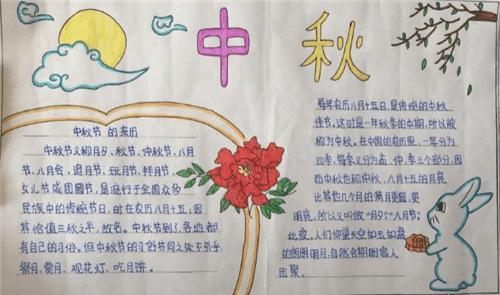 中秋
中秋节 的来历
中秋节又称月夕、秋节、仲秋节、八月
节、八月会、追月节、玩月节、拜月节、
女儿节或团圆节，是流行于全国众多
民族中的传统节日，时在农历八月十五；因
其恰值三秋之半，故名。中秋节到了各地都
有自己的习俗。但中秋节的习俗共同之处不外乎，
祭月、赏月、观花灯、吃月饼。
每年农历八月十五日，是传统的中秋
佳节。这时是一年秋季的中期，所以被
称为中秋。在中国的农历里，一年分为
四季，每季又分为孟、仲、季三个部分，因
而中秋也称仲秋。八月十五的月亮
比其他几个月的满月更圆，更
明亮，所以又叫做“月夕”“八月节”。
此夜，人们仰望天空如玉如盘
的朗朗明月，自然会期盼家人
团聚。